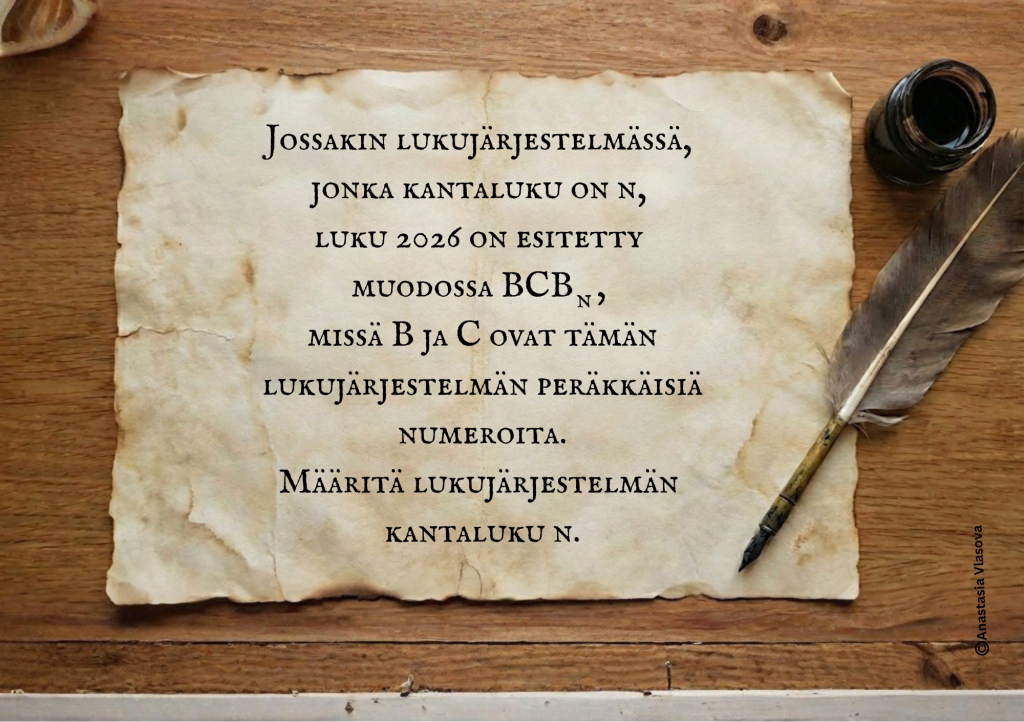 Jossakin lukujärjestelmässä,
jonka kantaluku on n,
luku 2026 on esitetty
muodossa BCBₙ,
missä B ja C ovat tämän
lukujärjestelmän peräkkäisiä
numeroita.
Määritä lukujärjestelmän
kantaluku n.
©Anastasia Vlasova